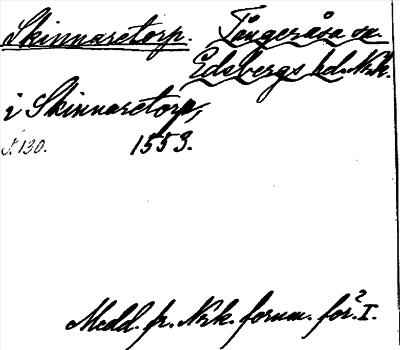 Skinnaretorp. Tångeråsa sn.
Edsbergs hd. Nrk.
i Skinnaretorp,
S. 130. 1553.
Medd. fr. Nrk. fornm. för. I.